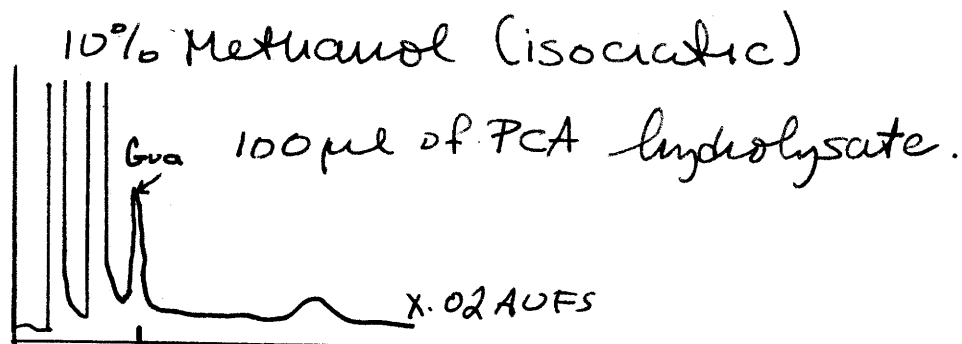 10% Methanol (isocratic)
Gua 100 µl of PCA hydrolysate.
X.02 AUFS